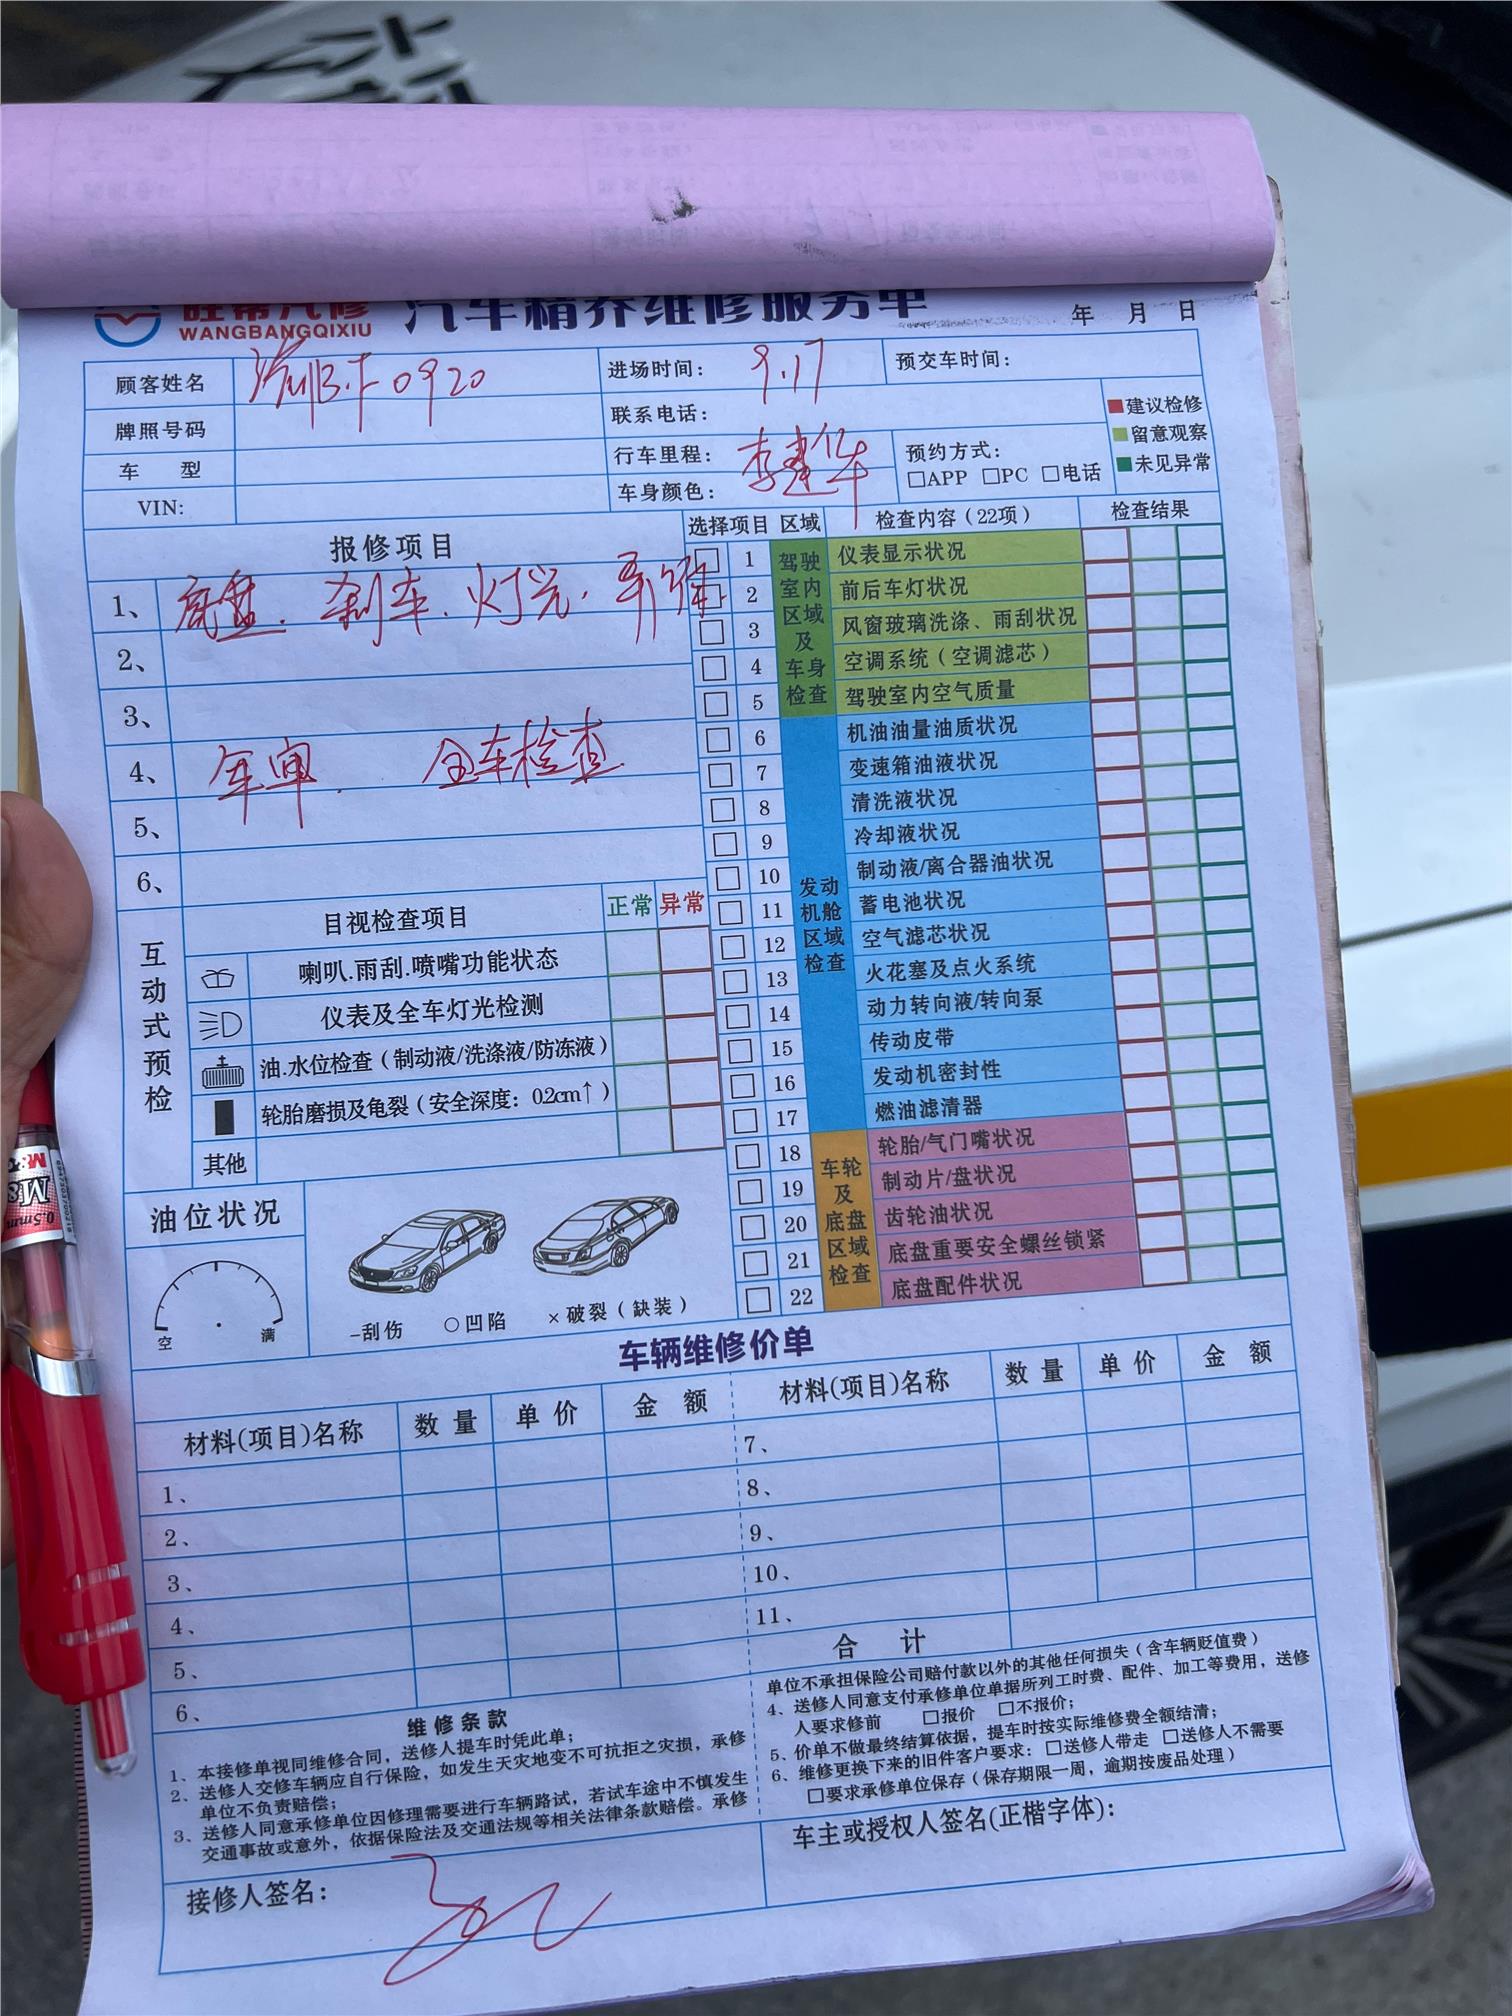 旺帮汽修
WANGBANGQIXIU
汽车精养维修服务单
年 月 日
顾客姓名
0920
进场时间： 9.17
预交车时间：
牌照号码
联系电话：
车 型
行车里程： 李建华
VIN:
车身颜色：
预约方式：
□APP □PC □电话
建议检修
留意观察
未见异常
报修项目
1、 底盘. 刹车. 灯光.
2、
3、
4、 年审. 全车检查
5、
6、
选择项目 区域 检查内容（22项） 检查结果
驾驶室内区域及车身检查
1 仪表显示状况
2 前后车灯状况
3 风窗玻璃洗涤、雨刮状况
4 空调系统（空调滤芯）
5 驾驶室内空气质量
发动机舱区域检查
6 机油油量油质状况
7 变速箱油液状况
8 清洗液状况
9 冷却液状况
10 制动液/离合器油状况
11 蓄电池状况
12 空气滤芯状况
13 火花塞及点火系统
14 动力转向液/转向泵
15 传动皮带
16 发动机密封性
17 燃油滤清器
车轮及底盘区域检查
18 轮胎/气门嘴状况
19 制动片/盘状况
20 齿轮油状况
21 底盘重要安全螺丝锁紧
22 底盘配件状况
互动式预检
目视检查项目 正常 异常
喇叭.雨刮.喷嘴功能状态
仪表及全车灯光检测
油.水位检查（制动液/洗涤液/防冻液）
轮胎磨损及龟裂（安全深度：0.2cm↑）
其他
油位状况
空 满
-刮伤 ○凹陷 ×破裂（缺装）
车辆维修价单
材料(项目)名称 数量 单价 金额
1、
2、
3、
4、
5、
6、
材料(项目)名称 数量 单价 金额
7、
8、
9、
10、
11、
合 计
维修条款
1、本接修单视同维修合同，送修人提车时凭此单；
2、送修人交修车辆应自行保险，如发生天灾地变不可抗拒之灾损，承修
单位不负责赔偿；
3、送修人同意承修单位因修理需要进行车辆路试，若试车途中不慎发生
交通事故或意外，依据保险法及交通法规等相关法律条款赔偿。承修
单位不承担保险公司赔付款以外的其他任何损失（含车辆贬值费）
4、送修人同意支付承修单位单据所列工时费、配件、加工等费用，送修
人要求修前 □报价 □不报价；
5、价单不做最终结算依据，提车时按实际维修费全额结清；
6、维修更换下来的旧件客户要求：□送修人带走 □送修人不需要
□要求承修单位保存（保存期限一周，逾期按废品处理）
接修人签名：
车主或授权人签名(正楷字体)：
M&G
0.5mm